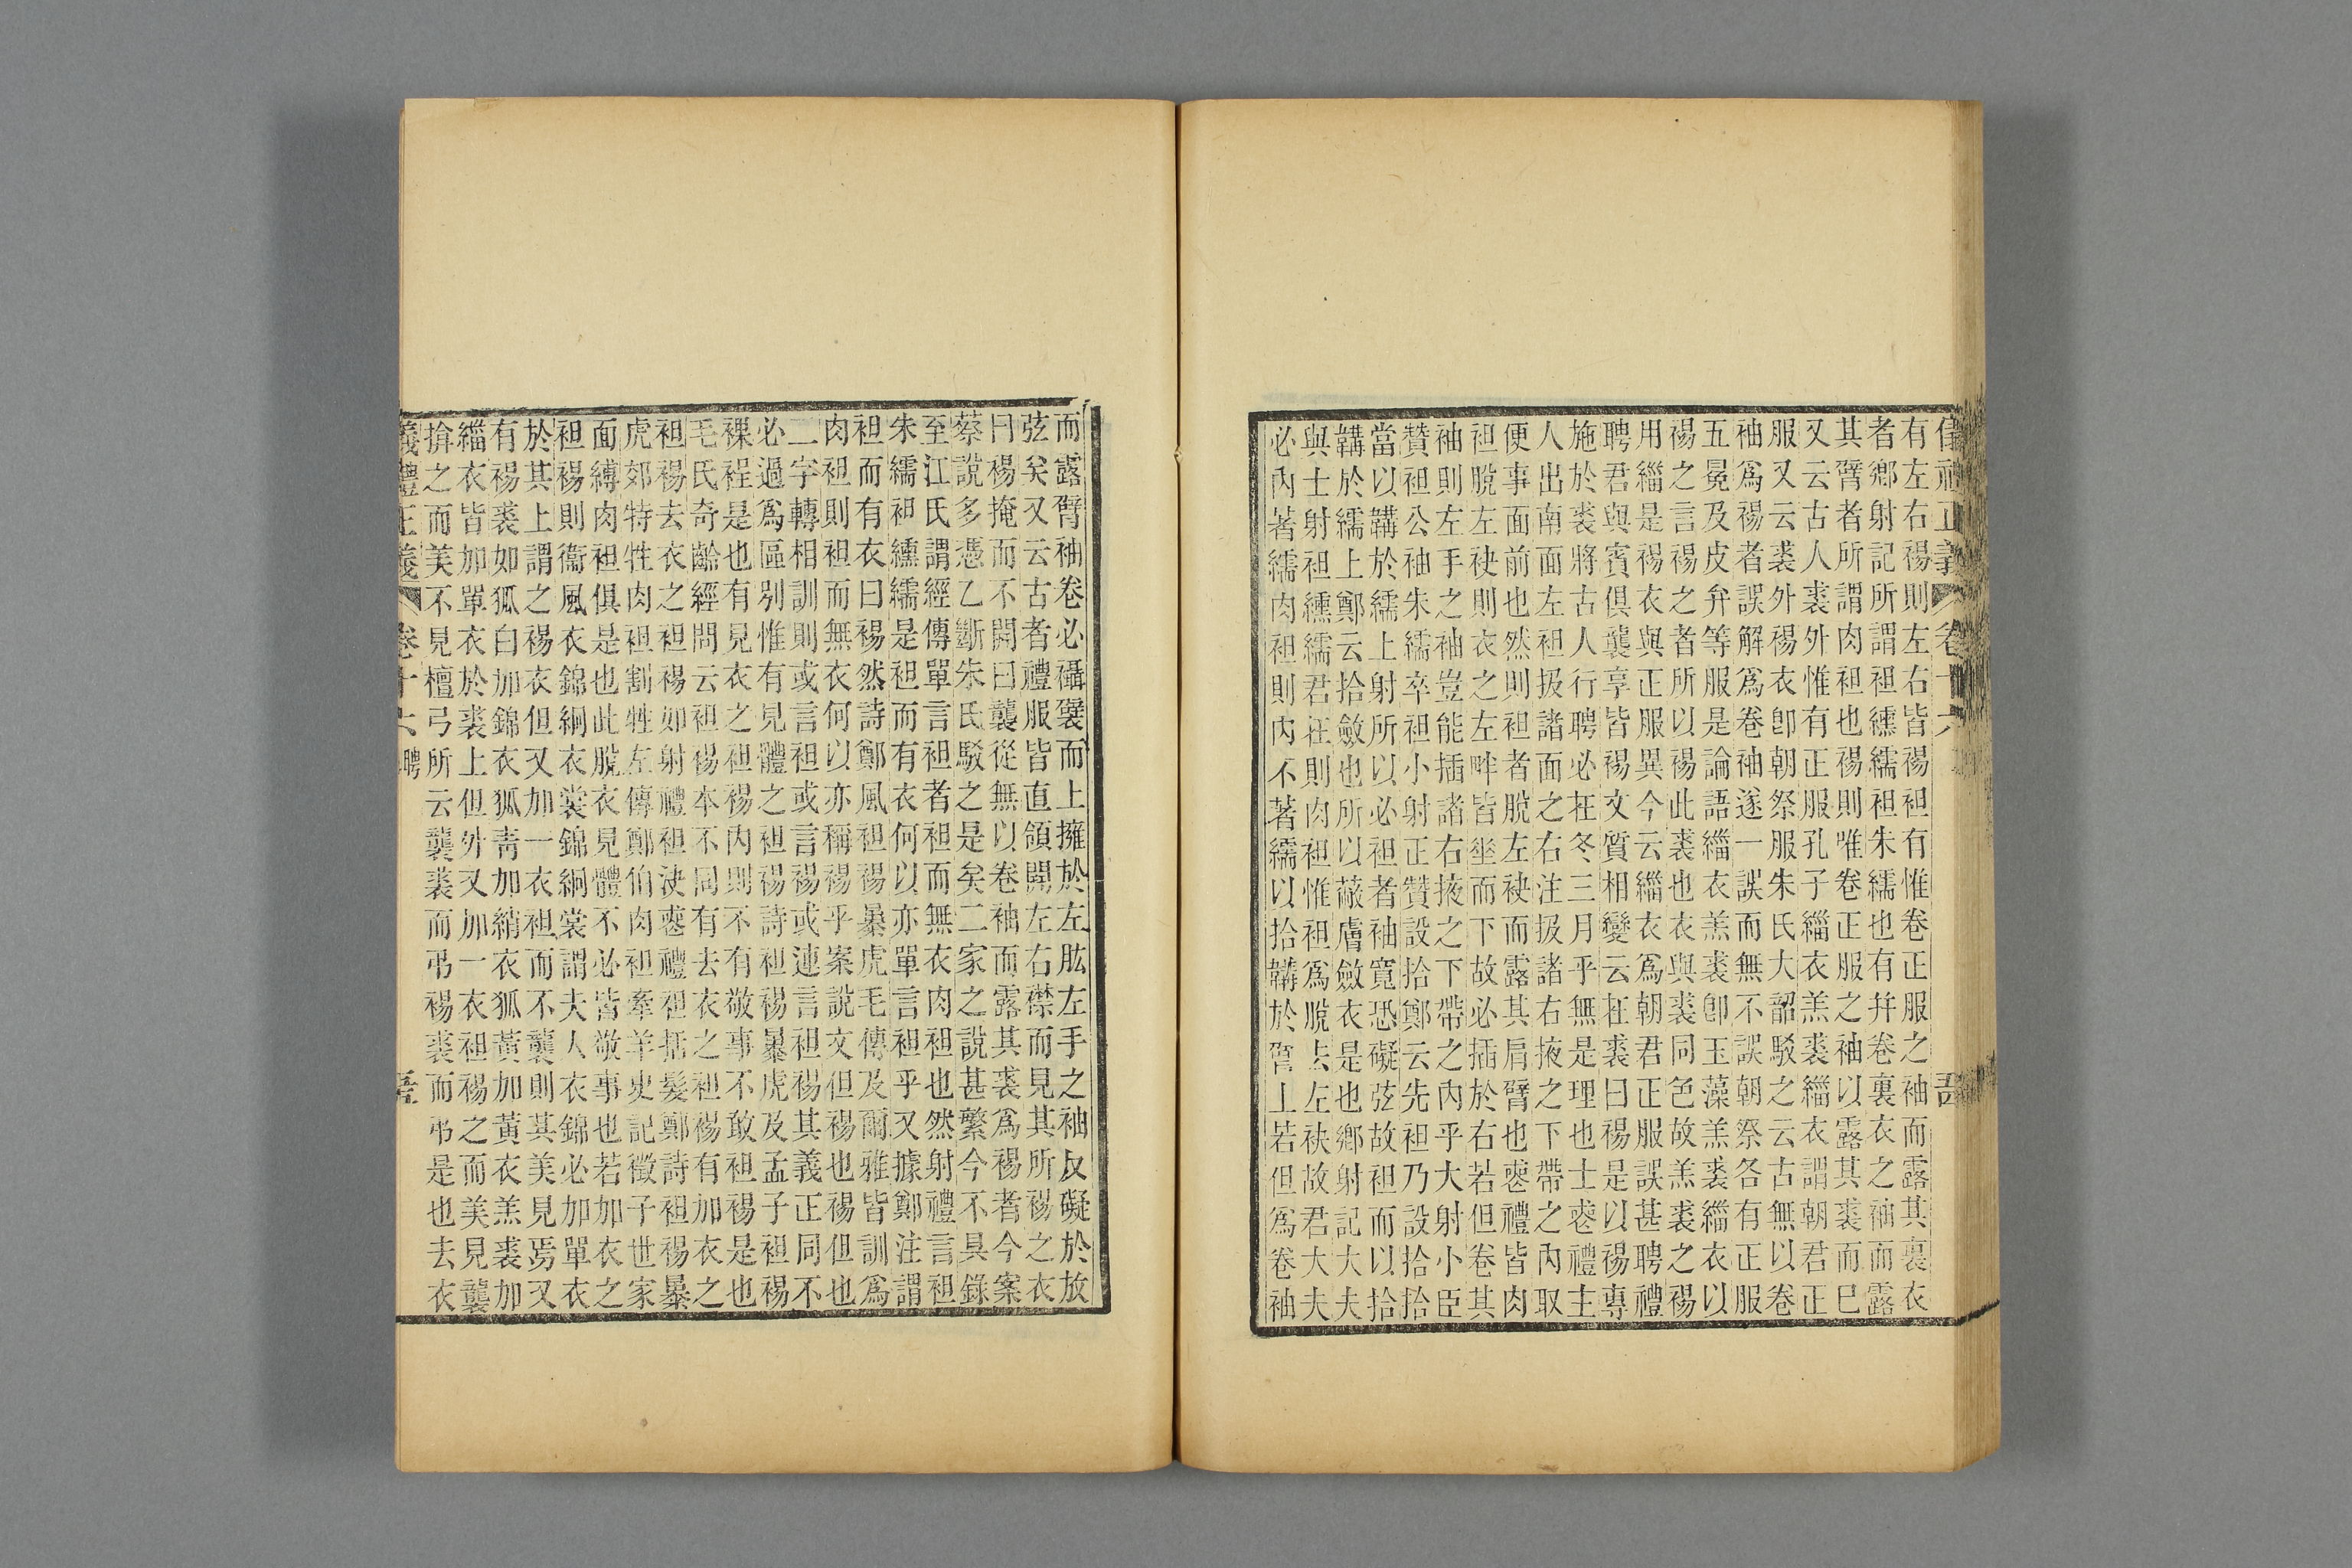 儀禮正義 卷十六
有左右裼則左右皆裼袒有惟卷正服之袖而露其裏衣
者鄉射記所謂袒纁襦袒朱襦也有并卷裏衣之袖而露
其臂者所謂肉袒也裼則唯卷正服之袖以露其裘而已
又云古人裘外惟有正服孔子緇衣羔裘緇衣謂朝君正
服又云裘外裼衣卽朝祭服朱氏大韶駁之云古無以卷
袖爲裼者誤解爲卷袖遂一誤而無不誤朝祭各有正服
五冕及皮弁等服是論語緇衣羔裘卽玉藻羔裘緇衣以
裼之言裼之者所以裼此裘也衣與裘同色故羔裘之裼
用緇是裼衣與正服異今云緇衣爲朝君正服誤甚聘禮
聘君與賓俱襲享皆裼文質相變云在裘曰裼是以裼專
施於裘將古人行聘必在冬三月乎無是理也士喪禮主
人出南面左袒扱諸面之右注扱諸右掖之下帶之內取
便事面前也然則袒者脫左袂而露其肩臂也喪禮皆肉
袒脫左袂則衣之左畔皆坐而下故必插於右若但卷其
袖則左手之袖豈能插諸右掖之下帶之內乎大射小臣
贊袒公袖朱襦卒袒小射正贊設拾鄭云先袒乃設拾拾
當以韝於襦上射所以必袒者袖寬恐礙弦故袒而以拾
韝於襦上鄭云拾斂也所以蔽膚斂衣是也鄉射記大夫
與士射袒纁襦君在則肉袒惟袒爲脫去左袂故君大夫
必內著襦肉袒則內不著襦以拾韝於臂上若但爲卷袖
而露臂袖卷必襵褻而上擁於左肱左手之袖反礙於放
弦矣又云古者禮服皆直領闊左右襟而見其所裼之衣
曰裼掩而不開曰襲從無以卷袖而露其裘爲裼者今案
蔡說多憑乙斷朱氏駁之是矣二家之說甚繁今不具錄
至江氏謂經傳單言袒者袒而無衣肉袒也然射禮言袒
朱襦袒纁襦是袒而有衣何以亦單言袒乎又據鄭注謂
袒而有衣曰裼然詩鄭風袒裼暴虎毛傳及爾雅皆訓爲
肉袒則袒而無衣何以亦稱裼乎案說文但裼也裼但也
二字轉相訓則或言袒或言裼或連言袒裼其義正同不
必過爲區別惟有見體之袒裼詩袒裼暴虎及孟子袒裼
裸裎是也有見衣之袒裼內則不有敬事不敢袒裼是也
毛氏奇齡經問云袒裼本不同有去衣之袒裼有加衣之
袒裼去衣之袒裼如射禮袒決喪禮袒括髮鄭詩袒裼暴
虎郊特牲肉袒割牲左傳鄭伯肉袒牽羊史記微子世家
面縛肉袒俱是也此脫衣見體不必皆敬事也若加衣之
袒裼則衞風衣錦絅衣裳錦絅裳謂夫人衣錦必加單衣
於其上謂之裼衣但又加一衣袒而不襲則其美見焉又
有裼裘如狐白加錦衣狐青加綃衣狐黃加黃衣羔裘加
緇衣皆加單衣於裘上但外又加一衣袒裼之而美見襲
揜之而美不見檀弓所云襲裘而弔裼裘而弔是也去衣
儀禮正義 卷十六 聘